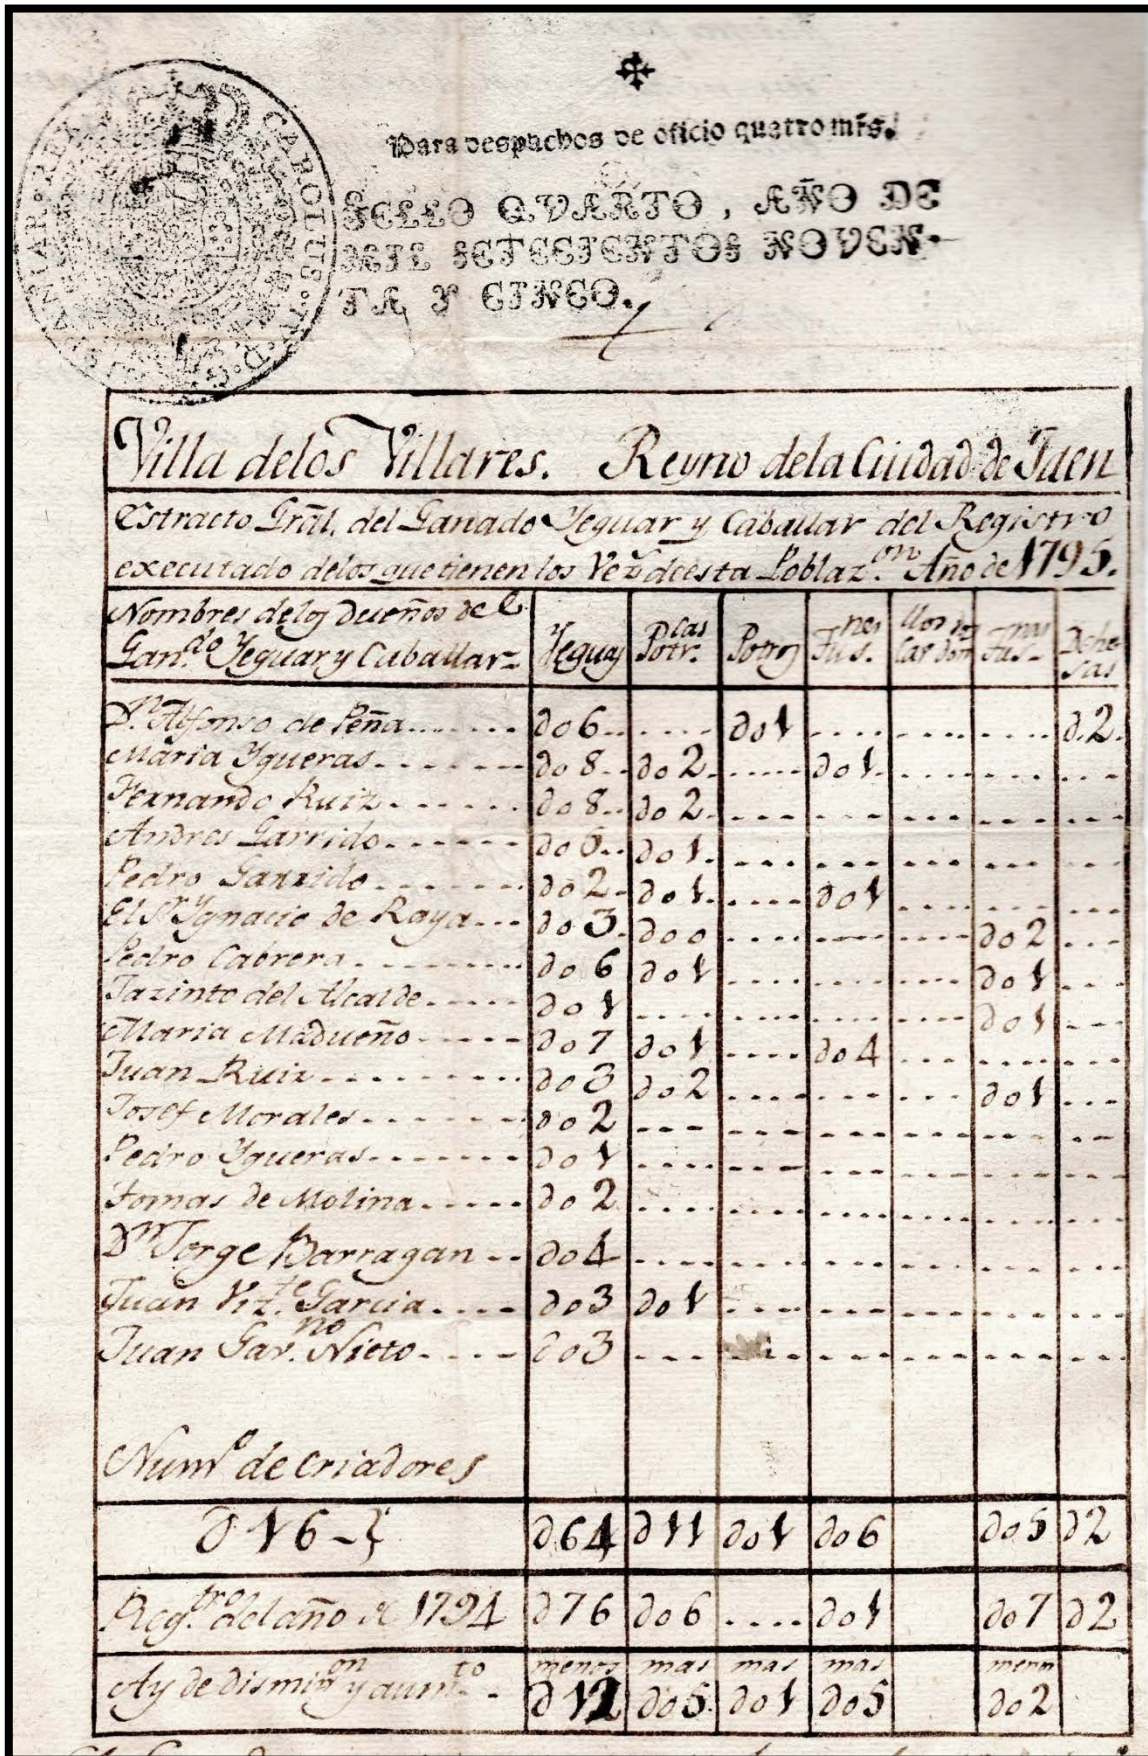 CAROLUS·IV·D·G· HISPANIAR·REX
Para despachos de oficio quatro mrs.
SELLO QVARTO, AÑO DE
MIL SETECIENTOS NOVEN-
TA Y CINCO.
Villa delos Villares. Reyno dela Ciudad de Jaen
Estracto Grãl. del Ganado Yeguar y Caballar del Registro
executado delos que tienen los Vez.s deesta Poblaz.on Año de 1795.
Nombres delos Dueños del Gan.do Yeguar y Caballar Yeguas Potr.cas Potros Jus.nes Jus.nas Dehesas
D.n Alfonso de Peña do6 do1 d.2.
Maria Ygueras do8 do2 do1
Fernando Ruiz do8 do2
Andres Garrido do1
Pedro Garrido do2 do1 do1
El S.r Ygnacio de Raya do3 doo do2
Pedro Cabrera do6 do1 do1
Jazinto del Alcalde do1 do1
Maria Madueño do7 do1 do4
Juan Ruiz do3 do2 do1
Josef Morales do2
Pedro Ygueras do1
Tomas de Molina do2
D.n Jorge Barragan do4
Juan Viz.te Garcia do3 do1
Juan Gar.no Nieto do3
Num.o de criadores
d16 d64 d11 do1 do6 do5 d2
Reg.tro del año de 1794 d76 do6 .... do1 do7 d2
Ay de dismin.on y aum.to menos d12 mas do5 mas do1 mas do5 menos do2